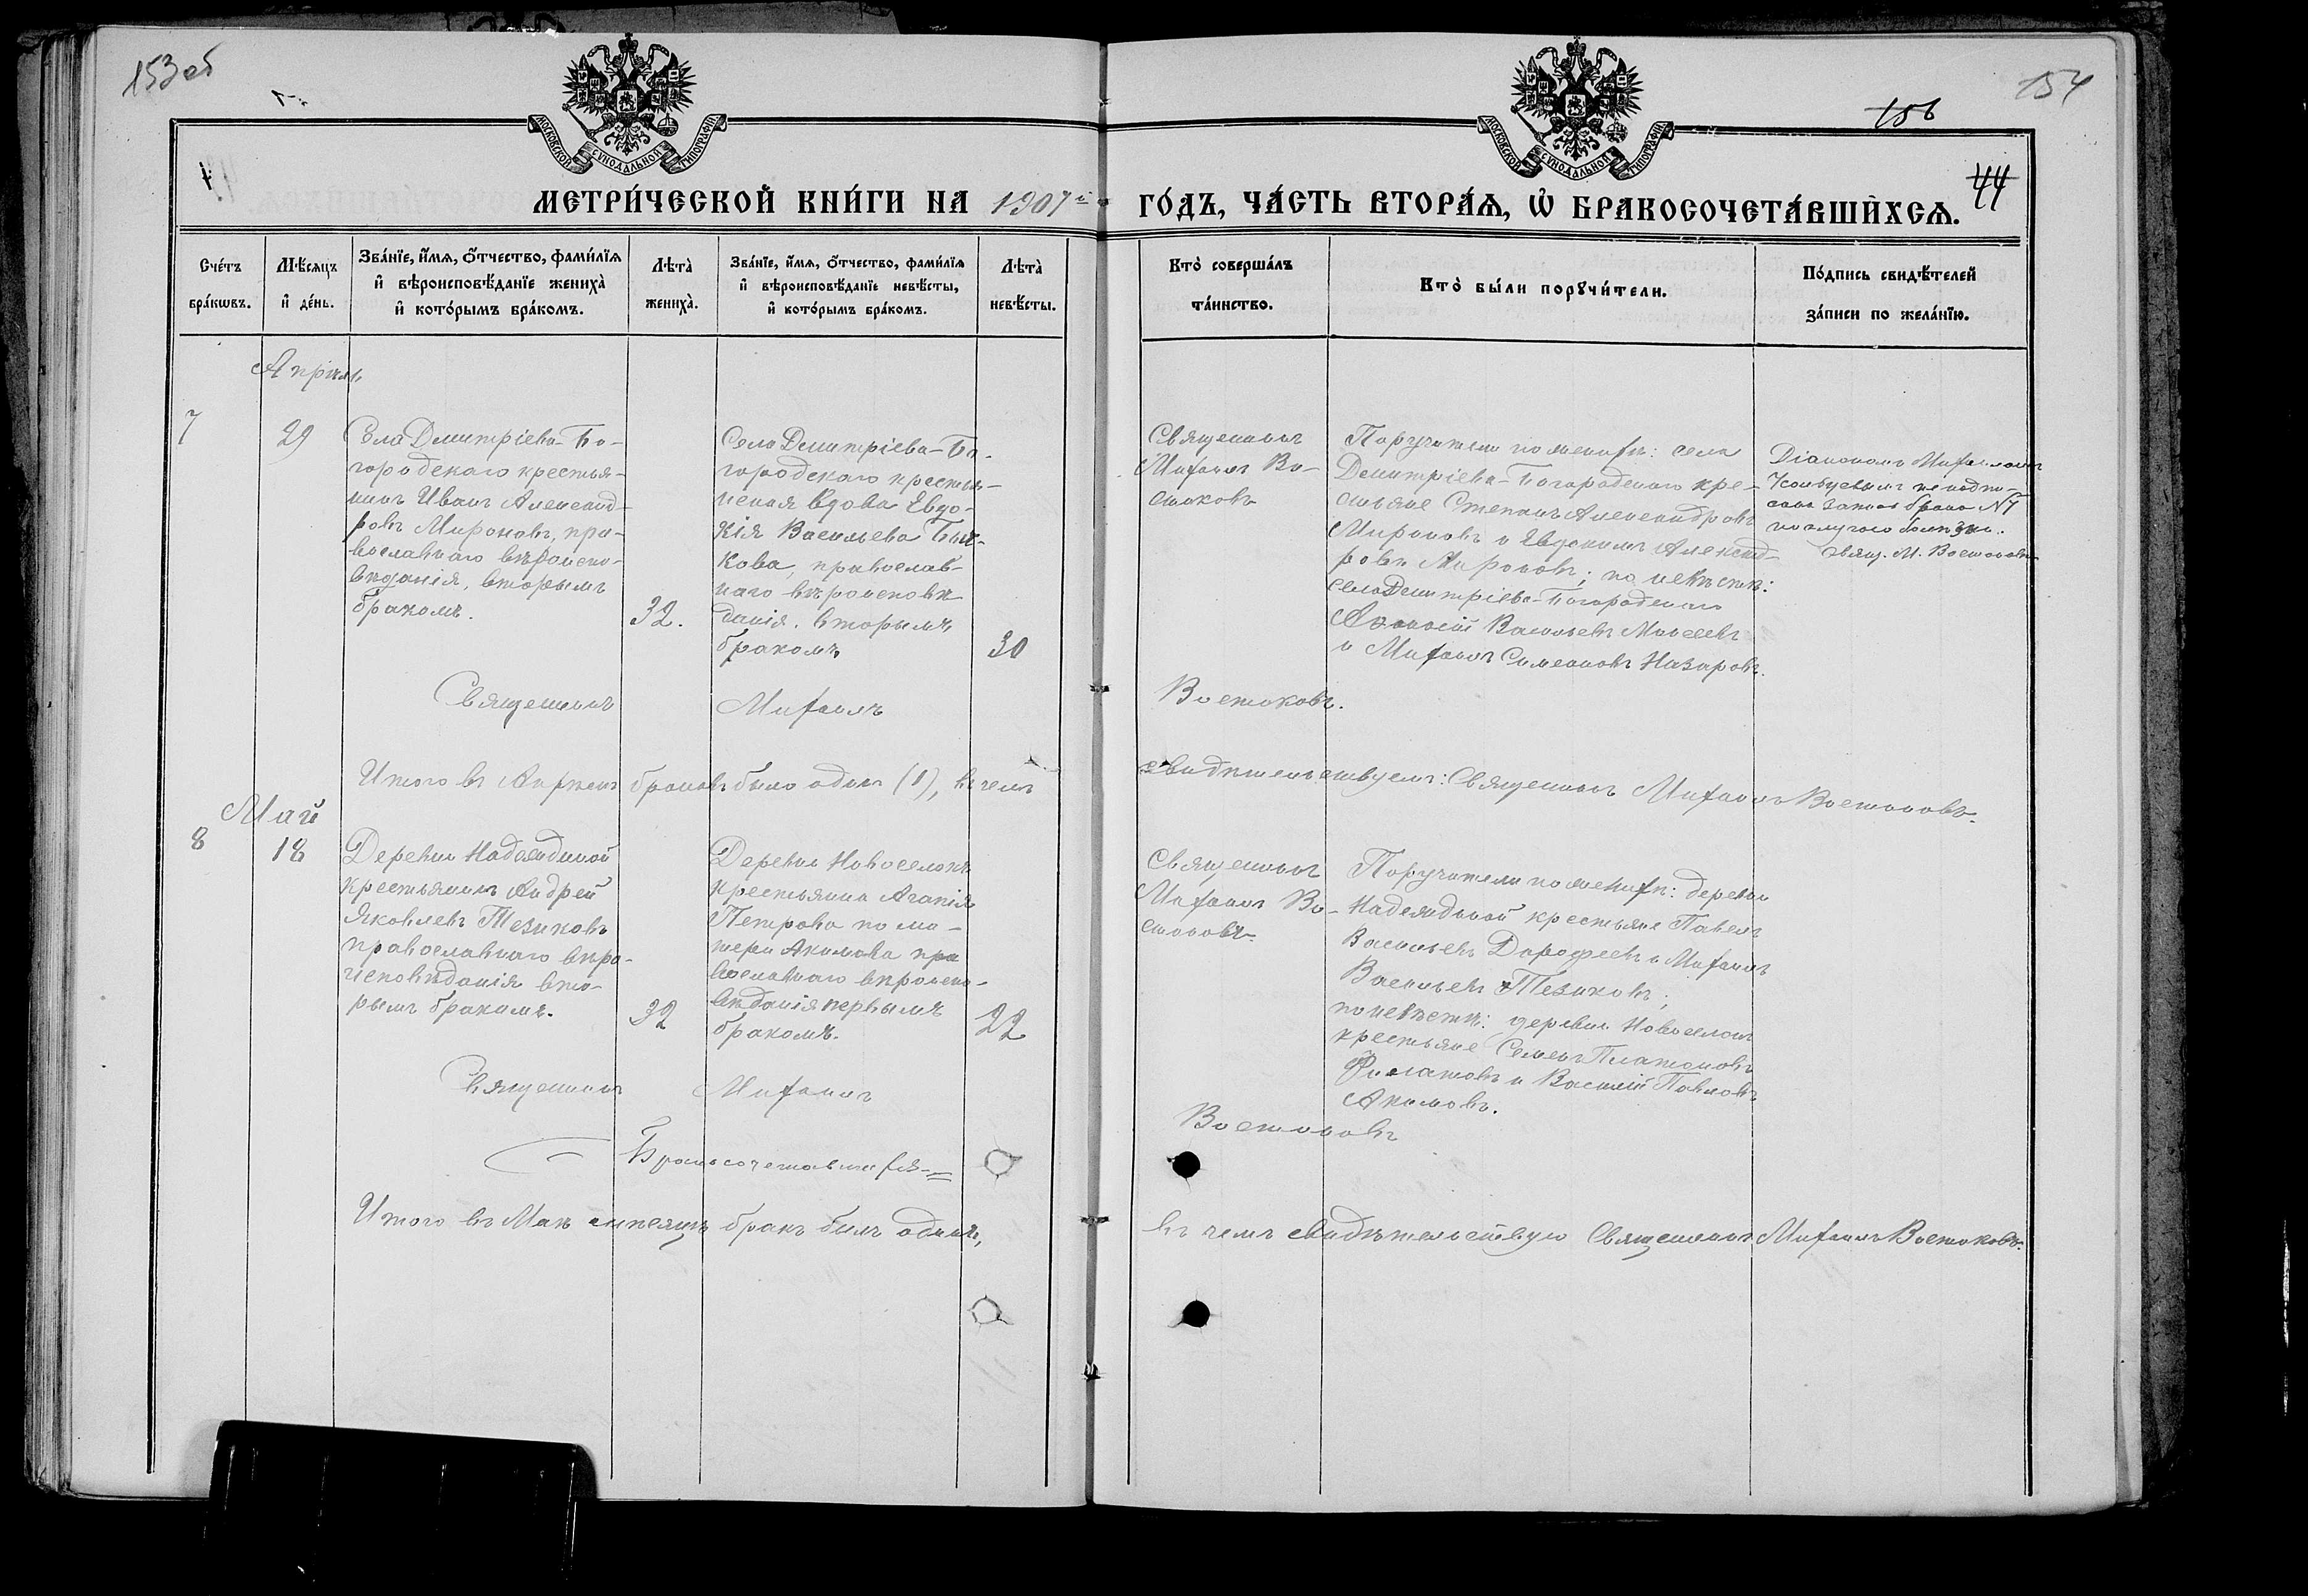 153 об
154
156
44
МОСКОВСКОЙ СѴНОДАЛЬНОЙ ТИПОГРАФІИ
МОСКОВСКОЙ СѴНОДАЛЬНОЙ ТИПОГРАФІИ
МЕТРИ́ЧЕСКОЙ КНИ́ГИ НА 1907й ГО́ДЪ, ЧА́СТЬ ВТОРА́Ѧ, Ѡ҆ БРАКОСОЧЕТА́ВШИХСѦ.
Сче́тъ
бра́кѡвъ.
Мѣ́сяцъ
и҆ де́нь.
Зва́нїе, и҆́мѧ, ѻ҆́тчество, фами́лїѧ
и҆ вѣроисповѣ́данїе жениха̀
и҆ кото́рымъ бра́комъ.
Лѣта̀
жениха̀.
Зва́нїе, и҆́мѧ, ѻ҆́тчество, фами́лїѧ
и҆ вѣроисповѣ́данїе невѣ́сты,
и҆ кото́рымъ бра́комъ.
Лѣта̀
невѣ́сты.
Кто̀ соверша́лъ
та́инство.
Кто̀ бы́ли порꙋчи́тели.
По́дпись свидѣ́телей
за́писи по жела́нїю.
Апрѣль
7
29
Села Дмитріева-Бо-
городскаго крестья-
нинъ Иванъ Александ-
ровъ Мироновъ, пра-
вославнаго вѣроиспо-
вѣданія, вторымъ
бракомъ.
32.
Села Дмитріева-Бо-
городскаго крестьян-
ская вдова Евдо-
кія Васильева
кова, православ-
наго вѣроисповѣ
данія. вторымъ
бракомъ
30
Священникъ
Михаилъ Во-
стоковъ
Поручители по женихѣ: села
Димитріева-Богородскаго кре-
стьяне Степанъ Александровъ
Мироновъ и Евдокимъ Александ-
ровъ Мироновъ; по невѣстѣ:
села Димитріева-Богородскаго
Васильевъ Моисеевъ
и Михаилъ Симеоновъ Назаровъ.
Діакономъ Михаиломъ
не подпи-
сана запись брака №7
по случаю болѣзни.
Свящ. М. Востоковъ
Священникъ Михаилъ Востоковъ.
Итого въ Апрѣлѣ браковъ было одинъ (1), въ чемъ свидѣтельствуемъ: Священникъ Михаилъ Востоковъ.
Май
8
18
Деревни Надеждиной
крестьянинъ Андрей
Яковлевъ Тезиковъ
православнаго вѣро-
исповѣданія вто-
рымъ бракомъ.
32
Деревни Новоселокъ
крестьянка Агапія
Петрова по ма-
тери Акимова пра
вославнаго вѣроиспо-
вѣданія первымъ
бракомъ.
22
Священникъ
Михаилъ Во-
стоковъ.
Поручители по женихѣ: деревни
Надеждиной крестьяне Павелъ
Васильевъ Дорофеевъ и Михаилъ
Васильевъ Тезиковъ;
по невѣстѣ: деревни Новоселокъ
крестьяне Семенъ Платоновъ
Филатовъ и Василій Павловъ
Акимовъ.
Священникъ Михаилъ Востоковъ
Бракосочетавшихся
Итого въ Маѣ мѣсяцѣ бракъ былъ одинъ, въ чемъ свидѣтельствую Священникъ Михаилъ Востоковъ.